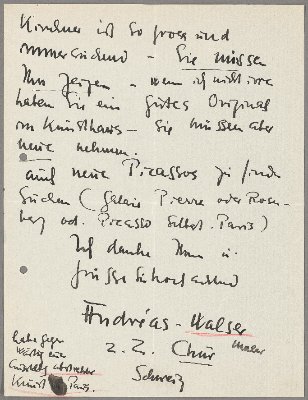 Kirchner ist so gross und
immer suchend – Sie müssen
Ihn zeigen – wenn ich nicht irre
haben Sie ein gutes Original
im Kunsthaus – Sie müssen aber
neue nehmen.
auch neue Picassos zu finden
suchen (Galerie Pierre oder Rosen-
berg od. Picasso selbst. Paris)
Ich danke Ihnen u.
grüsse Sie hochachtend
Andréas - Walser
Maler
z. Z. Chur
Schweiz
habe gegen
wärtig eine
Ausstellung abstrakter
Kunst Paris.